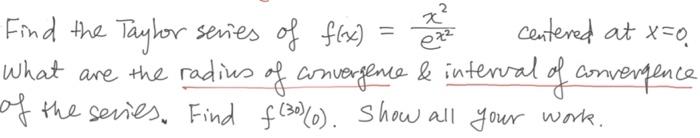 Find the Taylor series of f(x) = x²/e^x² centered at x=0.
What are the radius of convergence & interval of convergence
of the series. Find f⁽³⁰⁾(0). Show all your work.